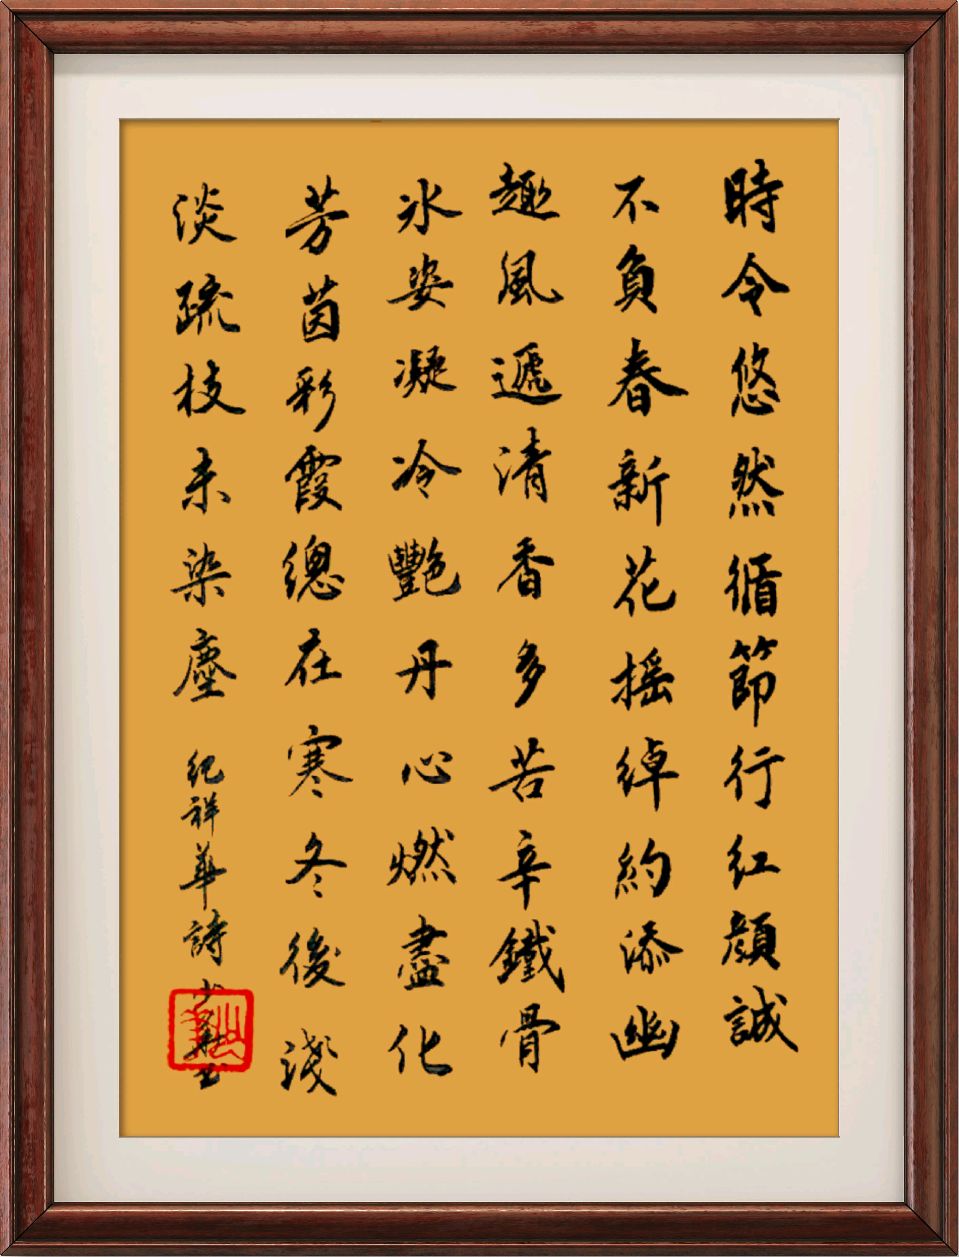 時令悠然循節行紅顏誠
不負春新花搖綽約添幽
趣風遞清香多苦辛鐵骨
冰姿凝冷艷丹心燃盡化
芳茵彩霞總在寒冬後淺
淡疏枝未染塵
紀祥華詩